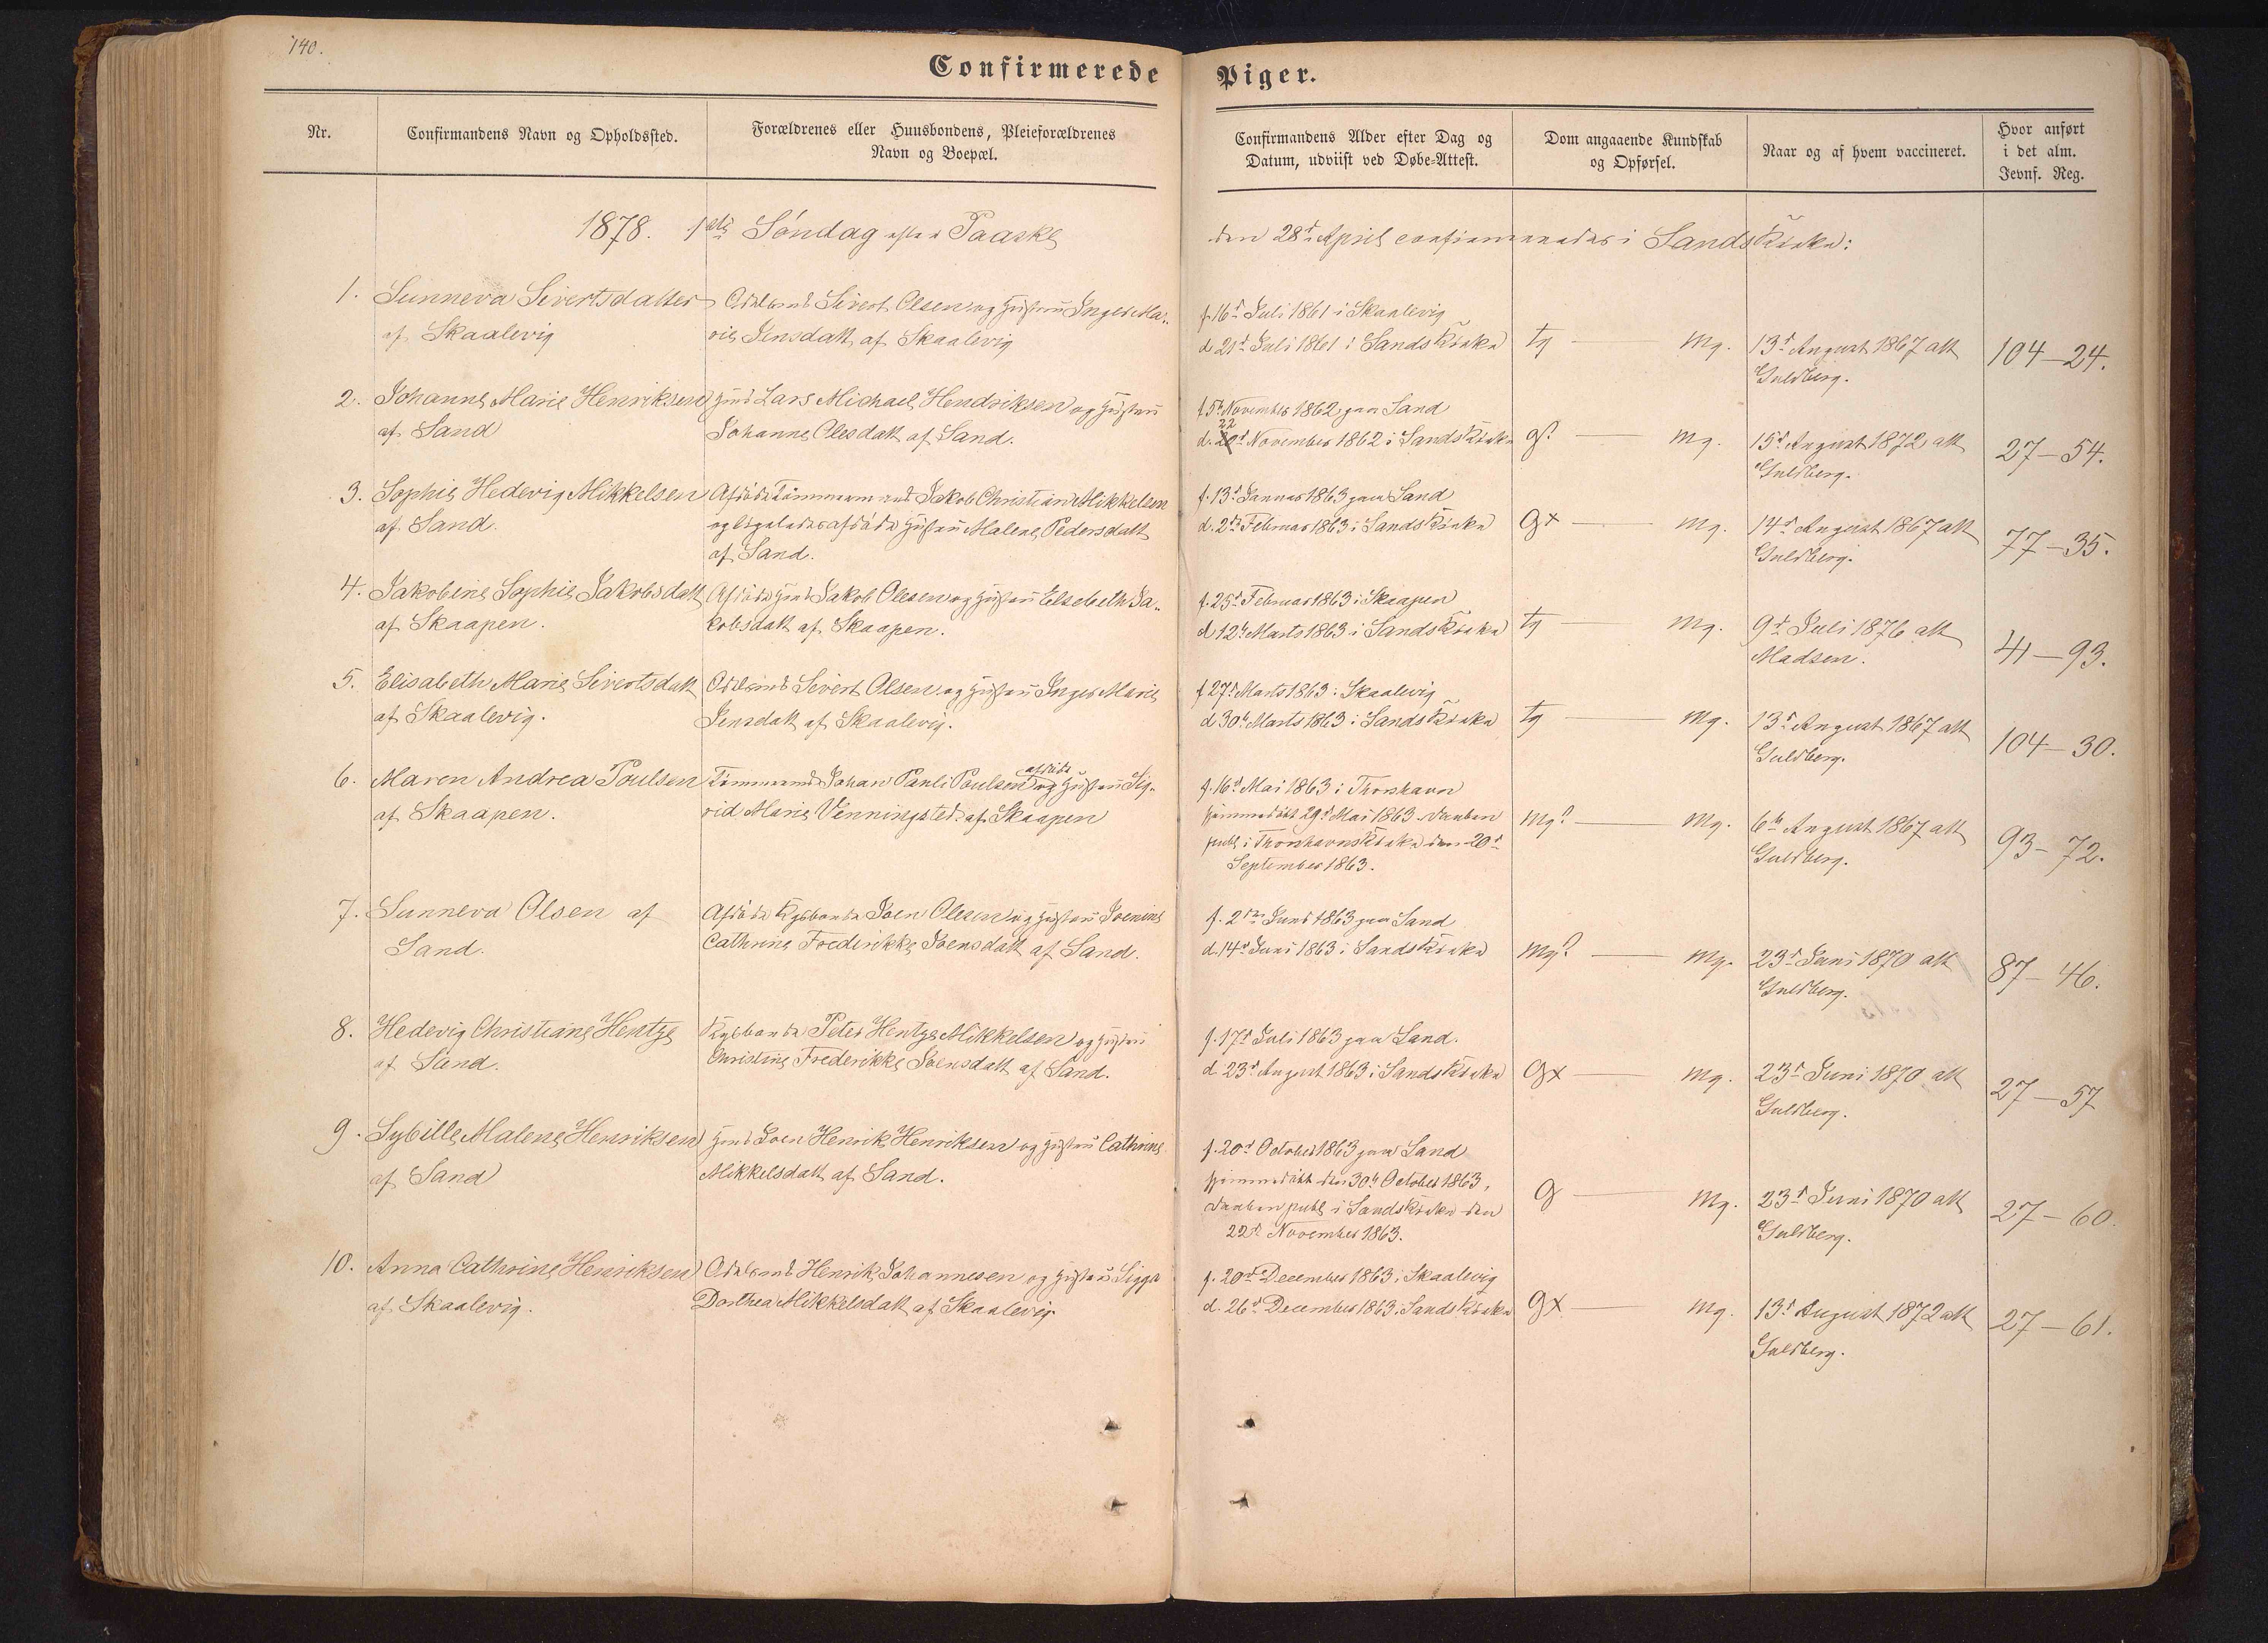 140.
Confirmerede Piger.
Nr.
Confirmandens Navn og Opholdssted.
Forældrenes eller Huusbondens, Pleieforældrenes
Navn og Boepæl.
Confirmandens Alder efter Dag og
Datum, udviist ved Døbe-Attest.
Dom angaaende Kundskab
og Opførsel.
Naar og af hvem vaccineret.
Hvor anført
i det alm.
Jevnf. Reg.
1878. 1ste Søndag efter Paaske
den 28d April confirmeredes i Sands Kirke:
1. Sunneva Sivertsdatter
af Skaalevig
Sivert Olsen og Hustru Inger Ma-
rie Jensdatt. af Skaalevig
f. 16d Juli 1861 i Skaalevig
d 21d Juli 1861 i Sands Kirke
tg — mg.
13d August 1867 att
Guldberg.
104—24.
2. Johanne Marie Henriksen
af Sand
Lars Michael Hendriksen og Hustru
Johanne Olesdatt af Sand.
f. 5t November 1862 paa Sand
22
d. November 1862 i Sands Kirke
g? — mg.
15d August 1872 att
Guldberg.
27—54.
3. Sophie Hedevig Mikkelsen
af Sand.
Afdøde Tømmermand Jakob Christian Mikkelsen
og ligeledes afdøde Hustru Malene Pedersdatt
af Sand.
f. 13d Januar 1863 paa Sand
d. 2d Februar 1863 i Sands Kirke
gx — mg.
14d August 1867 att
Guldberg.
77—35.
4. Jakobine Sophie Jakobsdatt
af Skaapen.
Afdøde Jakob Olesen og Hustru Elsebeth Ja-
kobsdatt af Skaapen.
f. 25d Februar 1863 i Skaapen
d 12t Marts 1863 i Sands Kirke
tg — mg.
9d Juli 1876 att
Madsen.
41—93.
5. Elisabeth Marie Sivertsdatt
af Skaalevig.
Sivert Olsen og Hustru Inger Marie
Jensdatt af Skaalevig.
f 27d Marts 1863 i Skaalevig
d 30t Marts 1863 i Sands Kirke
tg — mg.
13d August 1867 att
Guldberg.
104—30.
6. Maren Andrea Poulsen
af Skaapen.
afdøde
Johan Pauli Poulsen og Hustru Sig-
rid Marie Venningsted af Skaapen
f. 16d Mai 1863 i Thorshavn
hjemmedøbt 29d Mai 1863 Daaben
publ. i Thorshavns Kirke den 20d
September 1863.
mg? — mg.
6te August 1867 att
Guldberg.
93—72.
7. Sunneva Olsen af
Sand.
Afdøde Joen Olesen og Hustru Joenine
Cathrine Frederikke Joensdatt af Sand.
f. 2den Juni 1863 paa Sand
d. 14d Juni 1863 i Sands Kirke
mg? — mg.
23d Juni 1870 att
Guldberg.
87—46.
8. Hedevig Christiane Hentze
af Sand.
Peter Hentze Mikkelsen og Hustru
Christine Frederikke Joensdatt af Sand.
f. 17d Juli 1863 paa Sand.
d 23d August 1863 i Sands Kirke
gx — mg.
23d Juni 1870 att
Guldberg.
27—57
9. Sybille Malene Henriksen
af Sand
Joen Henrik Henriksen og Hustru Cathrine
Mikkelsdatt af Sand.
f. 20d October 1863 paa Sand
hjemmedøbt den 30t October 1863,
Daaben publ. i Sands Kirke den
22d November 1863.
g — mg.
23d Juni 1870 att
Guldberg.
27—60.
10. Anna Cathrine Henriksen
af Skaalevig.
Henrik Johannesen og Hustru Sigga
Dorthea Mikkelsdatt af Skaalevig.
f. 20d December 1863 i Skaalevig
d. 26d December 1863 i Sands Kirke
gx — mg.
13d August 1872 att
Guldberg.
27—61.